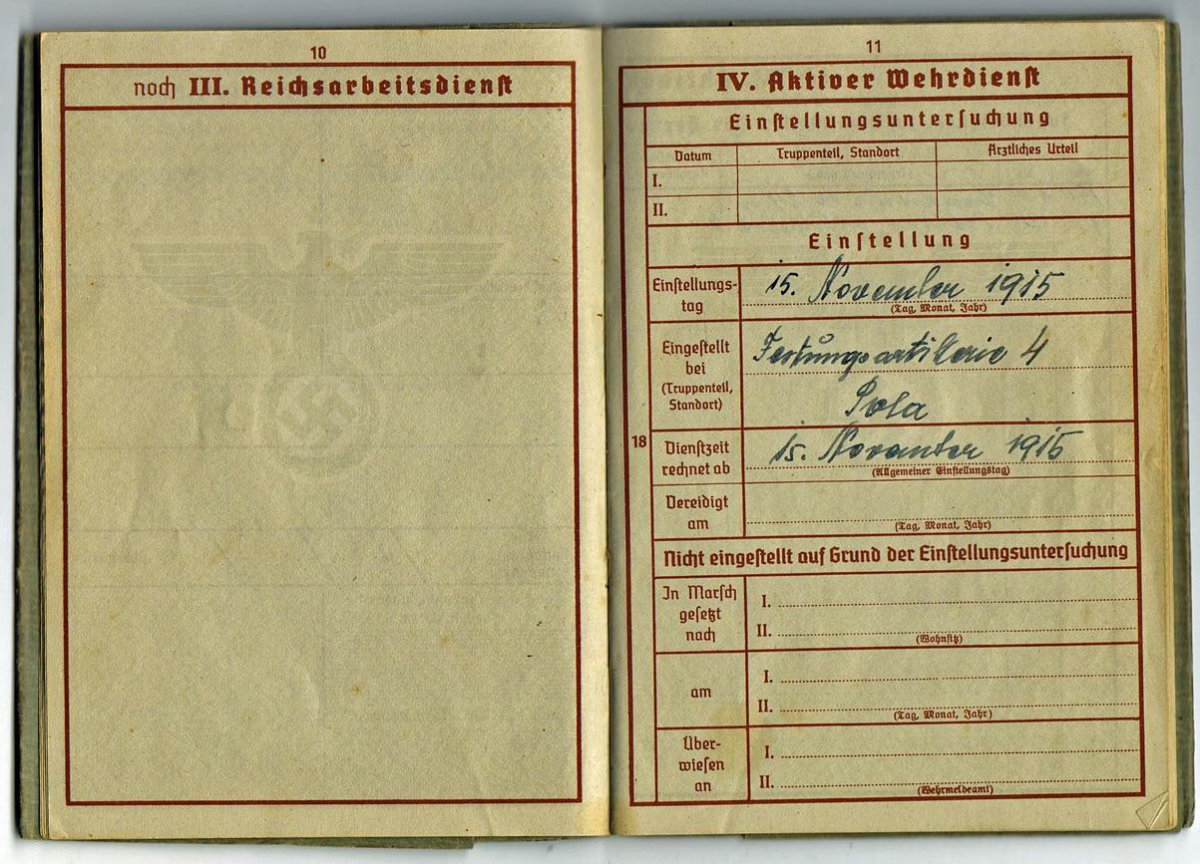 10
noch III. Reichsarbeitsdienst
11
IV. Aktiver Wehrdienst
Einstellungsuntersuchung
Datum Truppenteil, Standort Ärztliches Urteil
I.
II.
Einstellung
Einstellungs-
tag
15. November 1915
(Tag, Monat, Jahr)
Eingestellt
bei
(Truppenteil,
Standort)
Festungsartillerie 4
Pola
18
Dienstzeit
rechnet ab
15. November 1915
(Allgemeiner Einstellungstag)
Vereidigt
am
(Tag, Monat, Jahr)
Nicht eingestellt auf Grund der Einstellungsuntersuchung
In Marsch
gesetzt
nach
I.
II.
(Wohnsitz)
am
I.
II.
(Tag, Monat, Jahr)
Über-
wiesen
an
I.
II.
(Wehrmeldeamt)